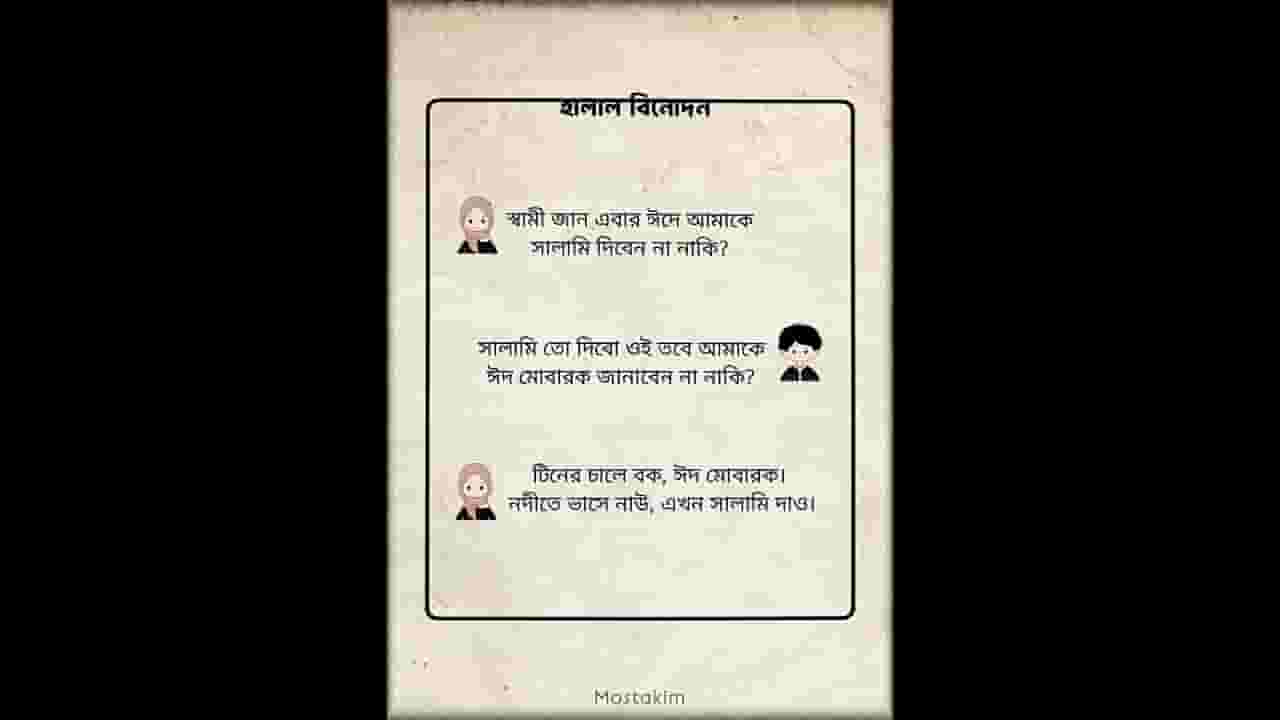 হালাল বিনোদন
স্বামী জান এবার ঈদে আমাকে
সালামি দিবেন না নাকি?
সালামি তো দিবো ওই তবে আমাকে
ঈদ মোবারক জানাবেন না নাকি?
টিনের চালে বক, ঈদ মোবারক।
নদীতে ভাসে নাউ, এখন সালামি দাও।
Mostakim